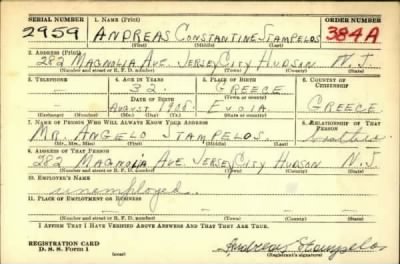 SERIAL NUMBER 1. NAME (Print) ORDER NUMBER
2959 ANDREAS CONSTANTINE STAMPELOS 384A
(First) (Middle) (Last)
2. ADDRESS (Print)
282 MAGNOLIA AVE. JERSEY CITY HUDSON N.J.
(Number and street or R. F. D. number) (Town) (County) (State)
3. TELEPHONE 4. AGE IN YEARS 5. PLACE OF BIRTH 6. COUNTRY OF CITIZENSHIP
— 32. GREECE
DATE OF BIRTH (Town or county)
AUGUST 1908 EVOIA GREECE
(Exchange) (Number) (Mo.) (Day) (Yr.) (State or country)
7. NAME OF PERSON WHO WILL ALWAYS KNOW YOUR ADDRESS 8. RELATIONSHIP OF THAT PERSON
MR. ANGELO STAMPELOS. brother
(Mr., Mrs., Miss) (First) (Middle) (Last)
9. ADDRESS OF THAT PERSON
282 MAGNOLIA AVE. JERSEY CITY HUDSON N.J
(Number and street or R. F. D. number) (Town) (County) (State)
10. EMPLOYER'S NAME
unemployed.
11. PLACE OF EMPLOYMENT OR BUSINESS
(Number and street or R. F. D. number) (Town) (County) (State)
I AFFIRM THAT I HAVE VERIFIED ABOVE ANSWERS AND THAT THEY ARE TRUE.
REGISTRATION CARD
D. S. S. Form 1 (over) Andreas Stampelos
(Registrant's signature)